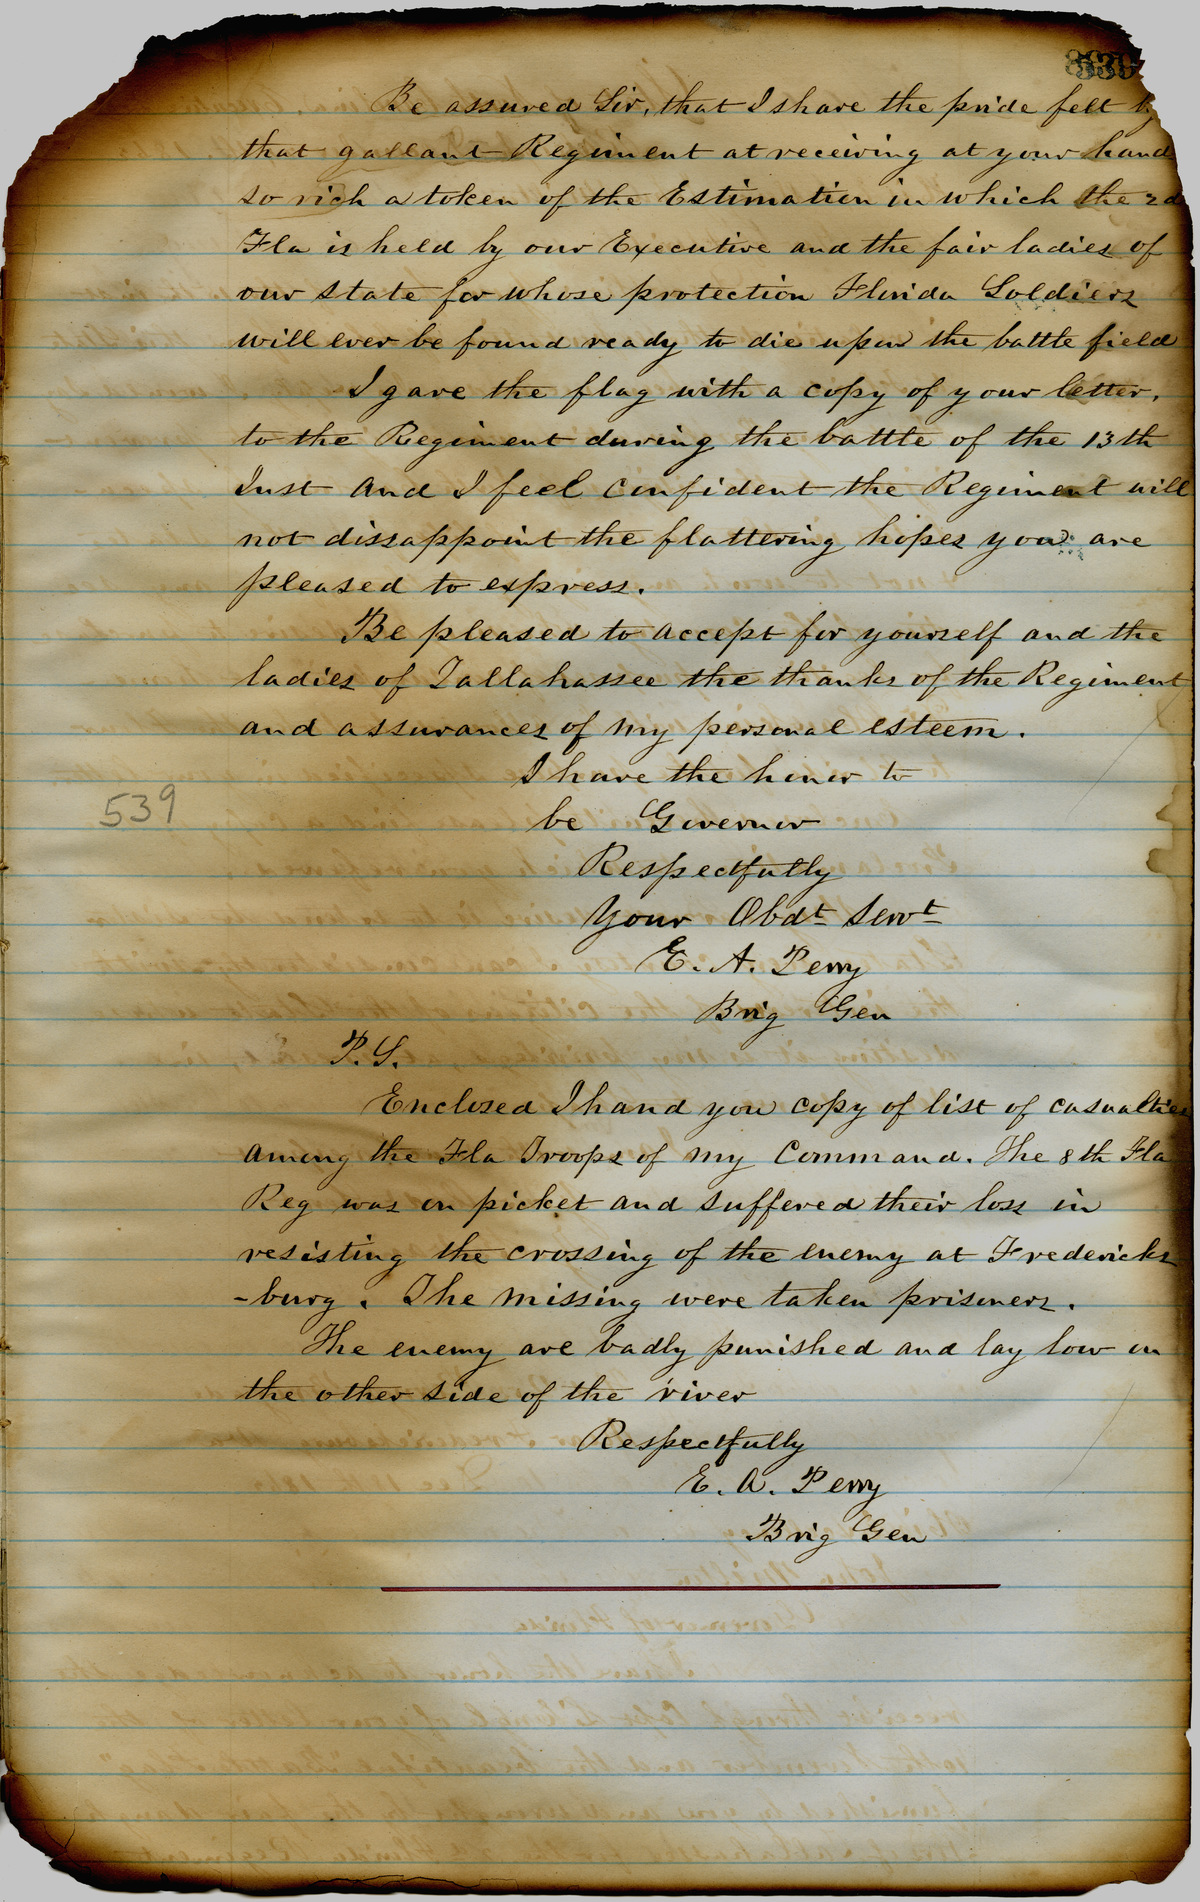 539
Be assured Sir, that I share the pride felt by
that gallant Regiment at receiving at your hand
so rich a token of the Estimation in which the 2d
Fla is held by our Executive and the fair ladies of
our State for whose protection Florida Soldiers
will ever be found ready to die upon the battle field
I gave the flag with a copy of your letter,
to the Regiment during the battle of the 13th
Inst and I feel confident the Regiment will
not dissappoint the flattering hopes you are
pleased to express.
Be pleased to accept for yourself and the
ladies of Tallahassee the thanks of the Regiment
and assurances of my personal esteem.
I have the honor to
539
be Governor
Respectfully
Your Obdt Servt
E. A. Perry
Brig Gen
P.S.
Enclosed I hand you copy of list of casualties
among the Fla Troops of my Command. The 8th Fla
Reg was on picket and suffered their loss in
resisting the crossing of the enemy at Fredericks
-burg. The missing were taken prisoners.
The enemy are badly punished and lay low on
the other side of the river
Respectfully
E. A. Perry
Brig Gen